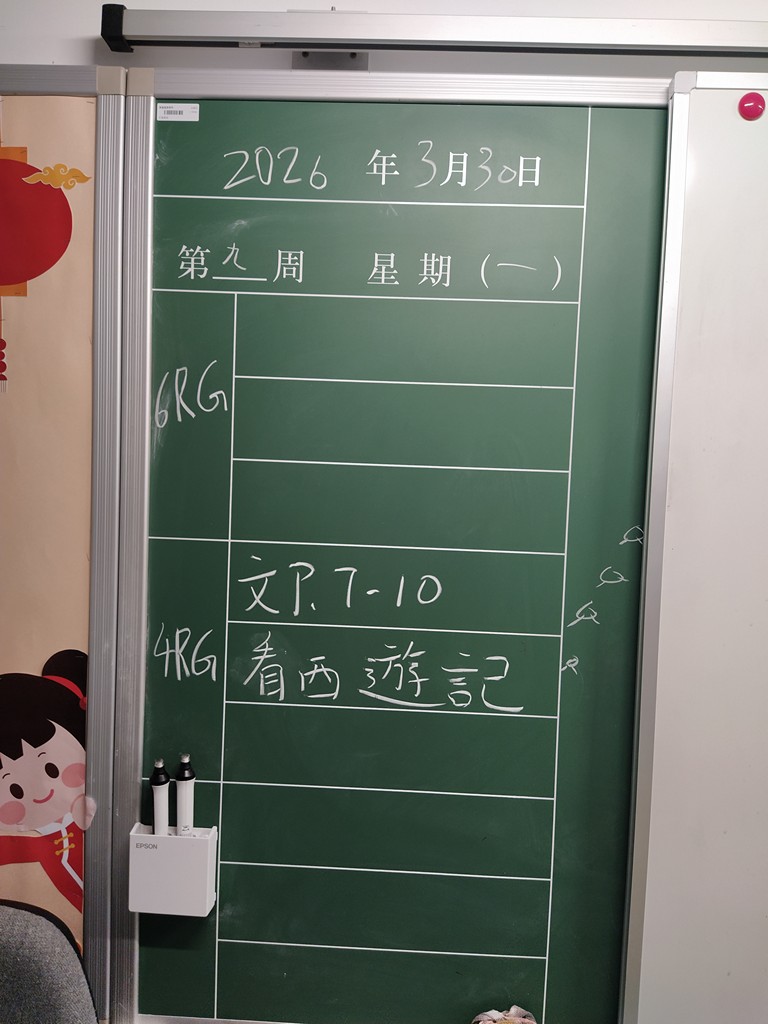 2026 年 3月30日
第九周 星期(一)
6RG
文P.7-10
4RG
看西遊記
EPSON